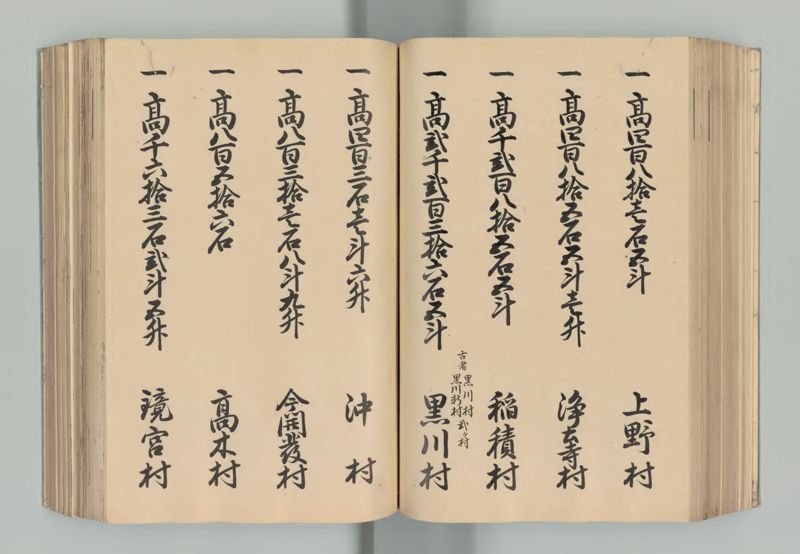 一 高四百八拾壱石五斗 上野村
一 高四百八拾五石五斗壱升 浄土寺村
一 高千弐百八拾五石五斗 稲積村
古者 黒川村 黒川新村 弐ヶ村
一 高弐千弐百三拾六石五斗 黒川村
一 高四百三石壱斗六升 沖村
一 高八百三拾壱石八斗九升 今開發村
一 高八百五拾六石 高木村
一 高千六拾三石弐斗五升 鏡宮村